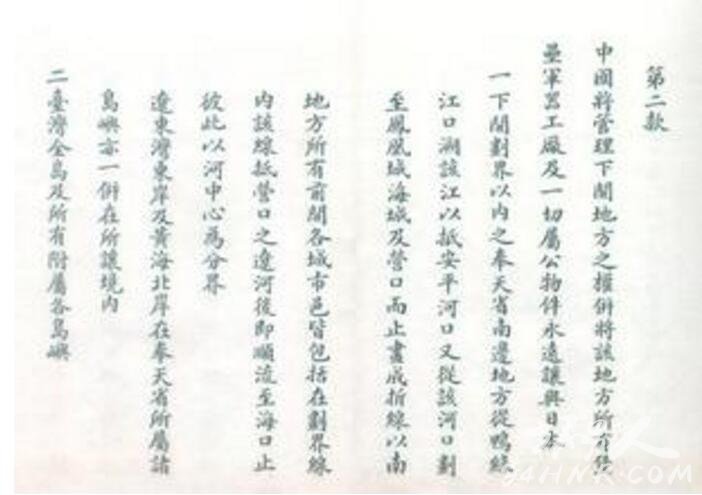 第二款
中國將管理下開地方之權併將該地方所有堡
壘軍器工廠及一切屬公物件永遠讓與日本
一下開劃界以內之奉天省南邊地方從鴨綠
江口溯該江以抵安平河口又從該河口劃
至鳳凰城海城及營口而止畫成折線以南
地方所有前開各城市邑皆包括在劃界線
內該線抵營口之遼河後即順流至海口止
彼此以河中心為分界
遼東灣東岸及黃海北岸在奉天省所屬諸
島嶼亦一併在所讓境內
二臺灣全島及所有附屬各島嶼
94HNR.COM